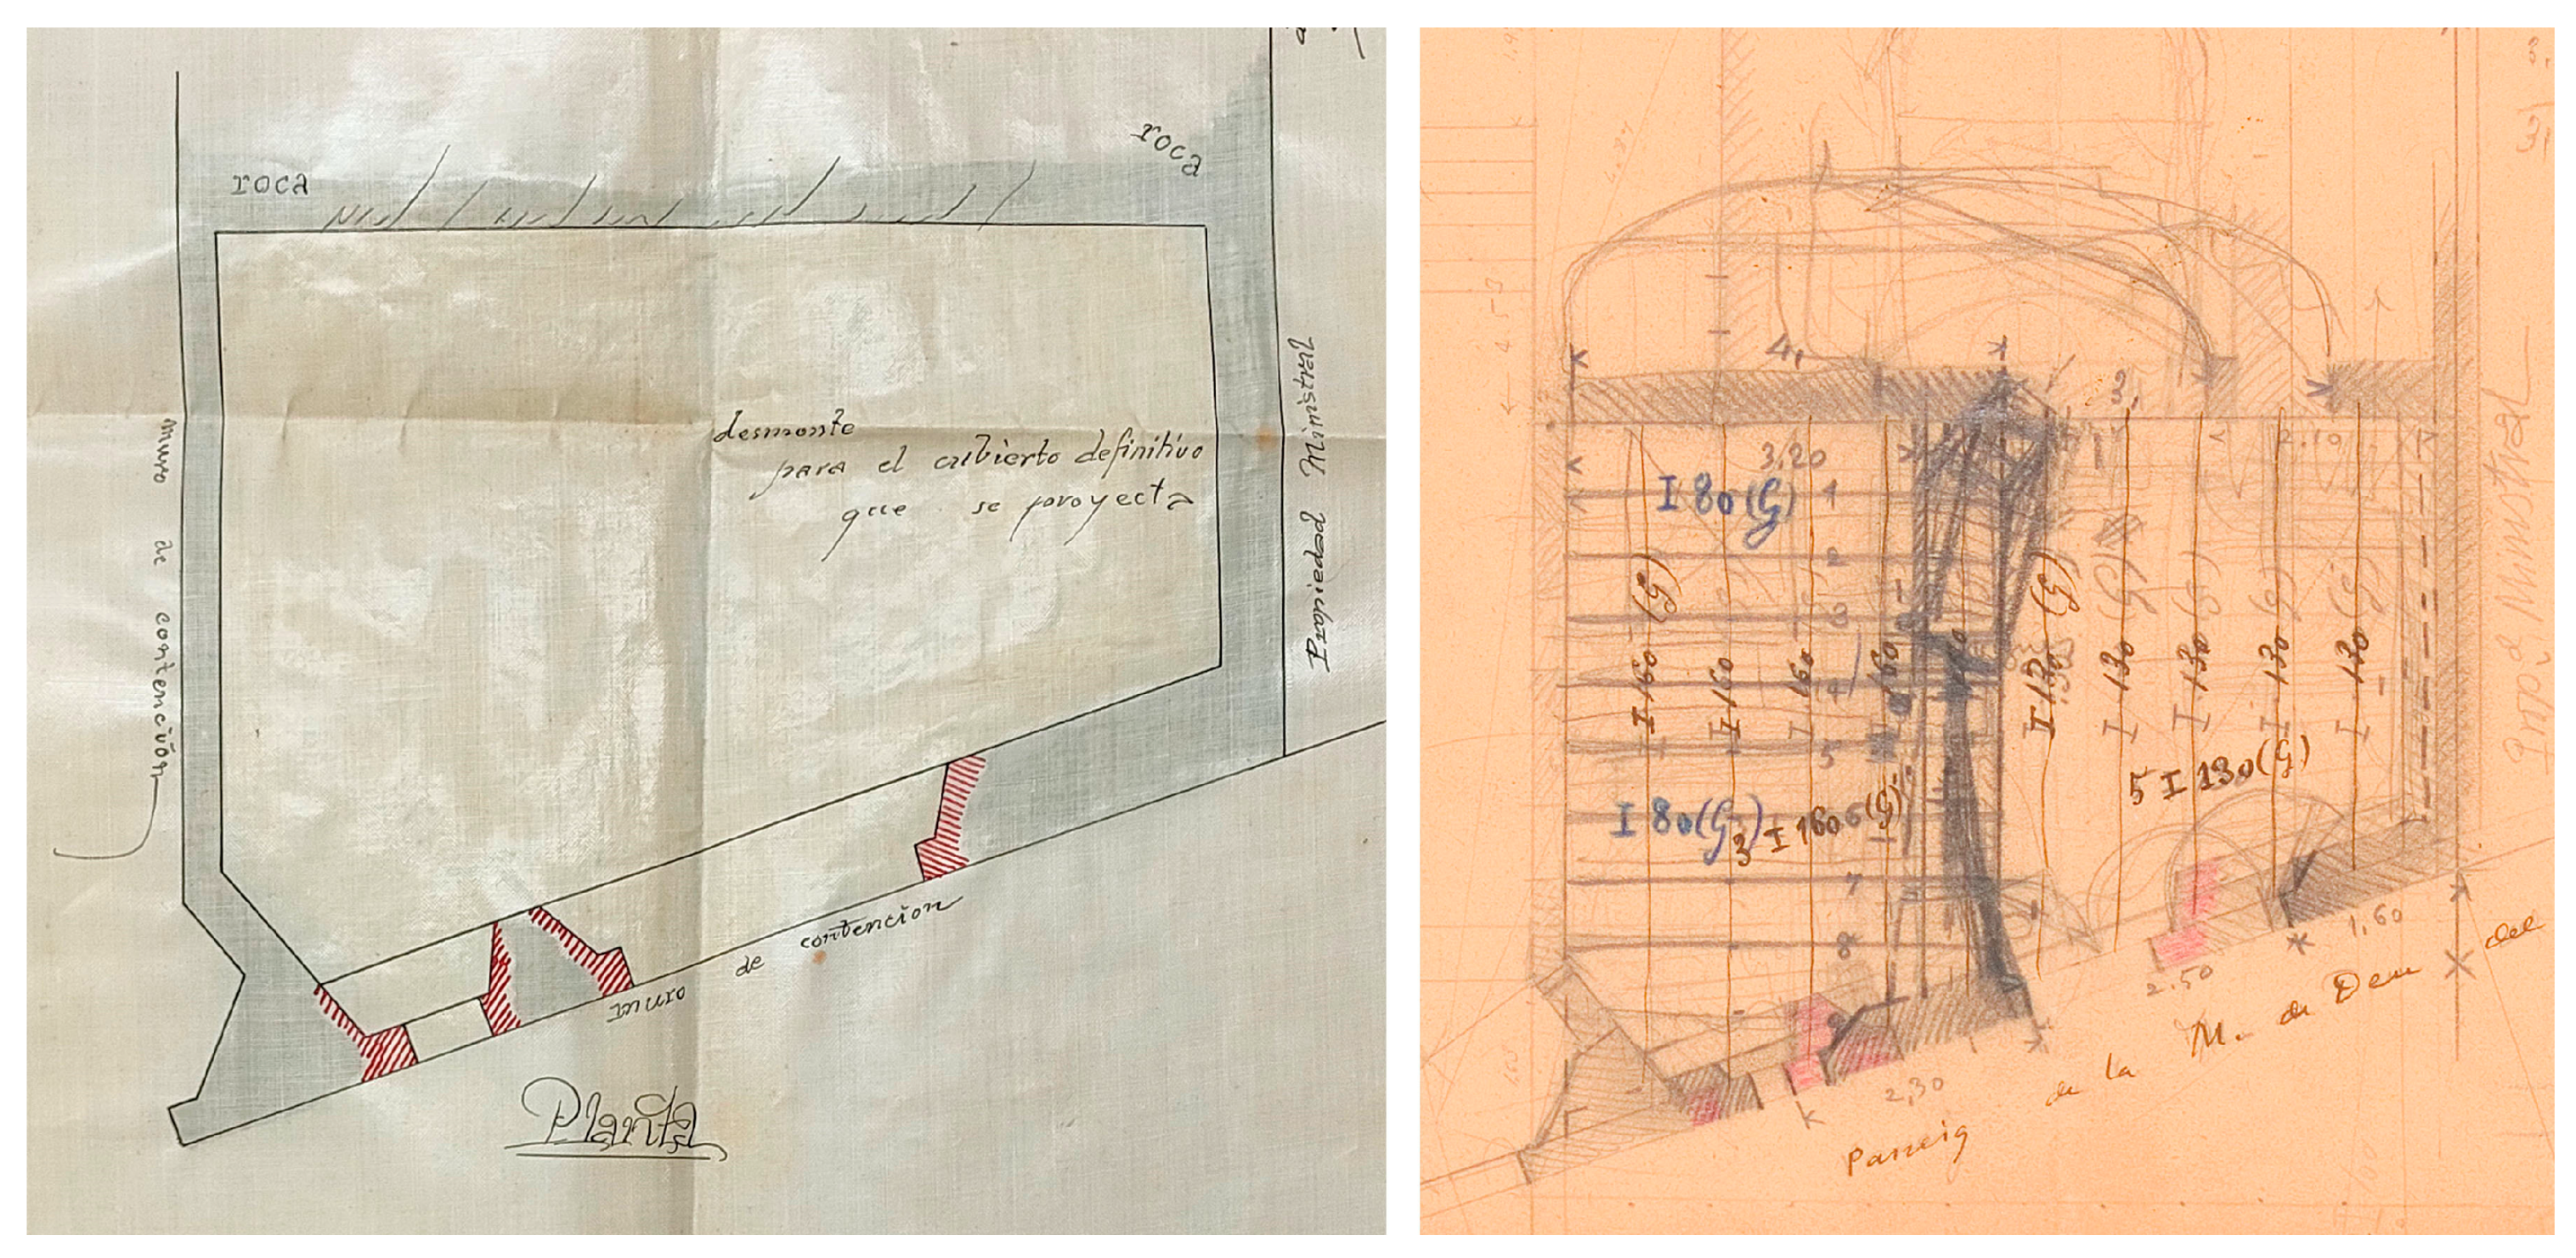 roca
roca
desmonte
para el cubierto definitivo
que se proyecta
muro de contención
Propiedad Ministral
muro de contencion
Planta
4,
3,
3,20
2.10
I 80 (G)
1
2
3
4
5
6
7
8
I 160 (G)
I 160
I 160
160
I 130 (G)
I 130 (G)
I 130 (G)
I 130 (G)
I 130 (G)
5 I 130 (G)
I 80 (G)
3 I 160 (G)
1,60
2.50
2,30
Passeig de la M. de Deu del
Propd Ministral
4.53